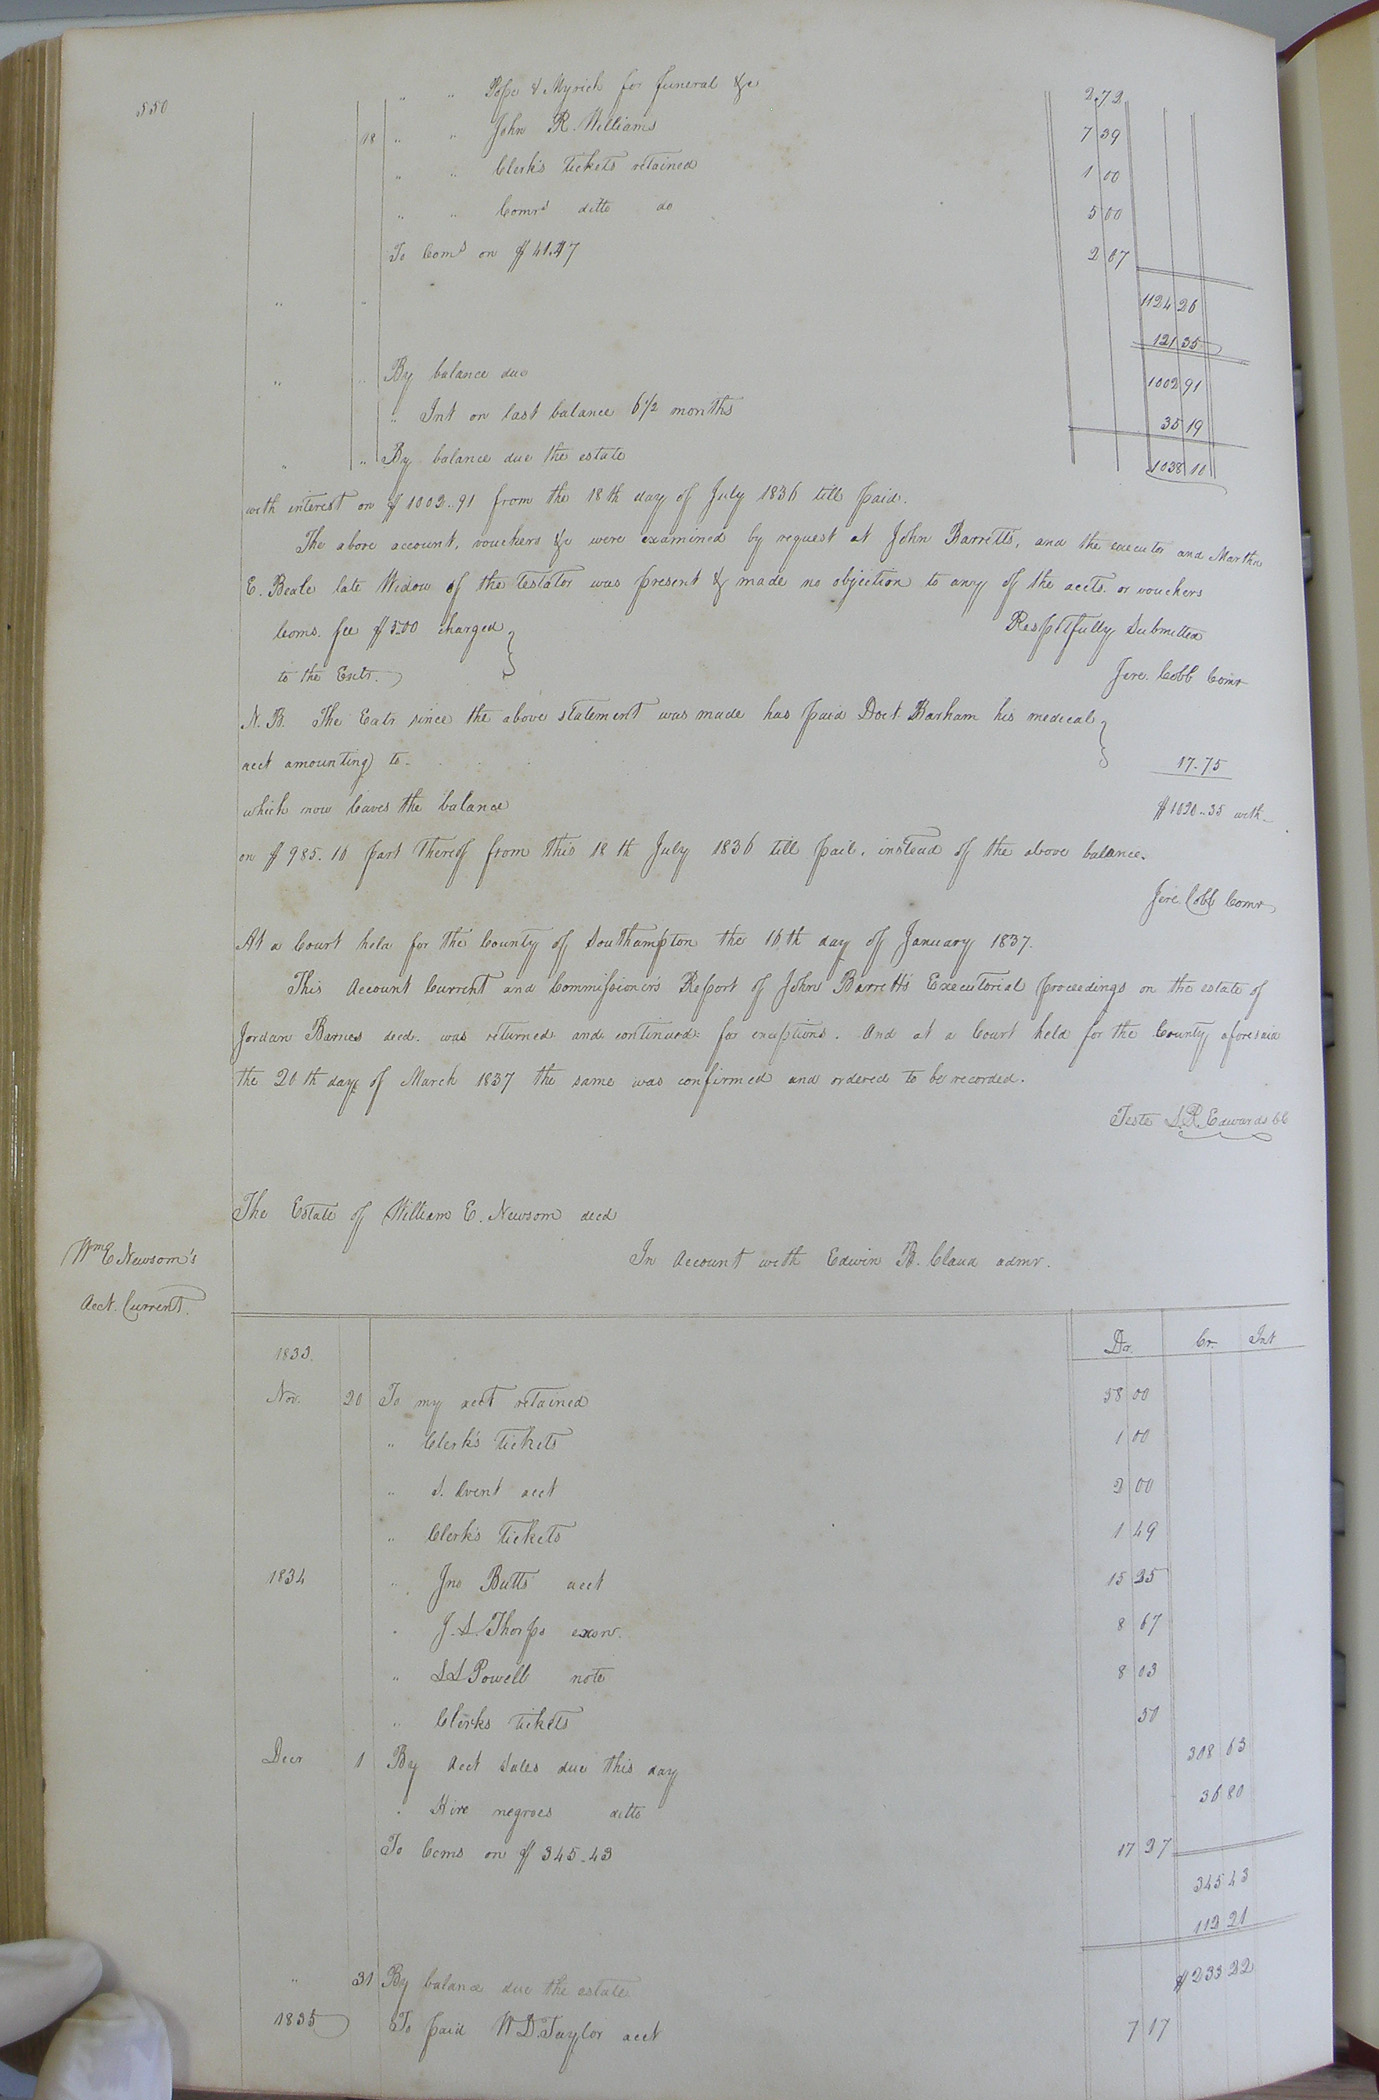 550
" " Pope & Myrick for funeral &c 2 72
18 " " John R. Williams 7 39
" " Clerk's tickets retained 1 00
" " Comrs ditto do 5 00
To Coms on $41.47 2 07
" " 1124 26
121 35
" " By balance due 1002 91
" Int on last balance 6 1/2 months 35 19
" " By balance due the estate 1038 10
with interest on $1002..91 from the 18th day of July 1836 till paid.
The above account, vouchers &c were examined by request at John Barretts, and the executor and Martha
E. Beale late Widow of the testator was present & made no objection to any of the accts. or vouchers
Coms. fee $5.00 charged Respctfully Submitted
to the Exctr. Jere. Cobb Comr
N.B. The Exctr since the above statement was made has paid Doct. Barham his medical
acct amounting to. 17.75
which now leaves the balance $1020..35 with
on $985.16 part thereof from this 18th July 1836 till paid, instead of the above balance.
Jere. Cobb Comr
At a Court held for the County of Southampton the 16th day of January 1837.
This Account Current and Commissioners Report of John Barretts Executorial proceedings on the estate of
Jordan Barnes decd. was returned and continued for exceptions. And at a Court held for the County aforesaid
the 20th day of March 1837 the same was confirmed and ordered to be recorded.
Teste L.R. Edwards CC
The Estate of William E. Newsom decd
In Account with Edwin B. Claud admr.
Wm E Newsom's
Acct. Current.
1833. Dr. Cr. Int
Nov. 20 To my acct retained 58 00
" Clerk's tickets 1 00
" S. Avent acct 2 00
" Clerk's tickets 1 49
1834 " Jno Butts acct 15 25
" J. S. Thorps exor. 8 67
" Powell note 8 03
" Clerks tickets 50
Decr 1 By Acct sales due this day 308 63
" Hire negroes ditto 36 80
To Coms on $345.43 17 27
345 43
112 21
" 31 By balance due the estate $233 22
1835 To paid W D Taylor acct 7 17